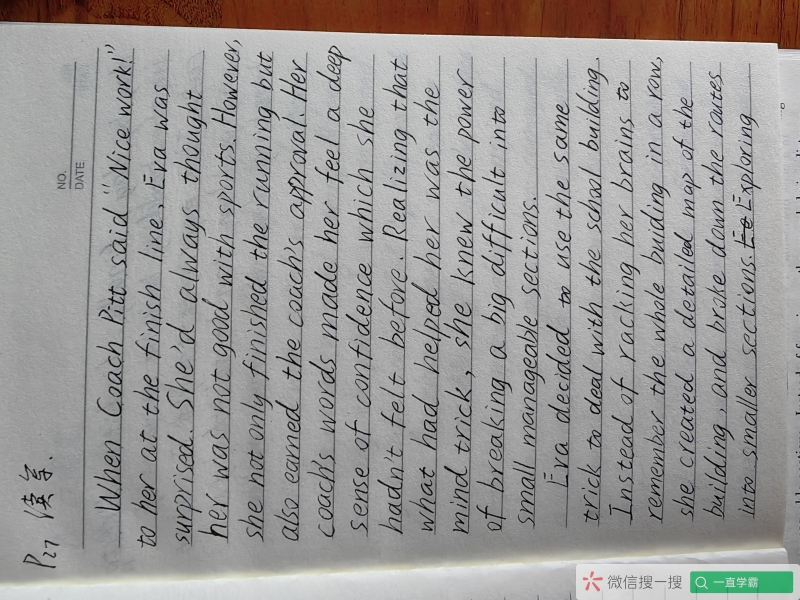 P27 读享.
NO.
DATE
When Coach Pitt said "Nice work!"
to her at the finish line, Eva was
surprised. She'd always thought
her was not good with sports. However,
she not only finished the running but
also earned the coach's approval. Her
coach's words made her feel a deep
sense of confidence which she
hadn't felt before. Realizing that
what had helped her was the
mind trick, she knew the power
of breaking a big difficult into
small manageable sections.
Eva decided to use the same
trick to deal with the school building.
Instead of racling her brains to
remember the whole buiding in a row,
she created a detailed map of the
building, and broke down the routes
into smaller sections. Exploring
微信搜一搜
一直学霸